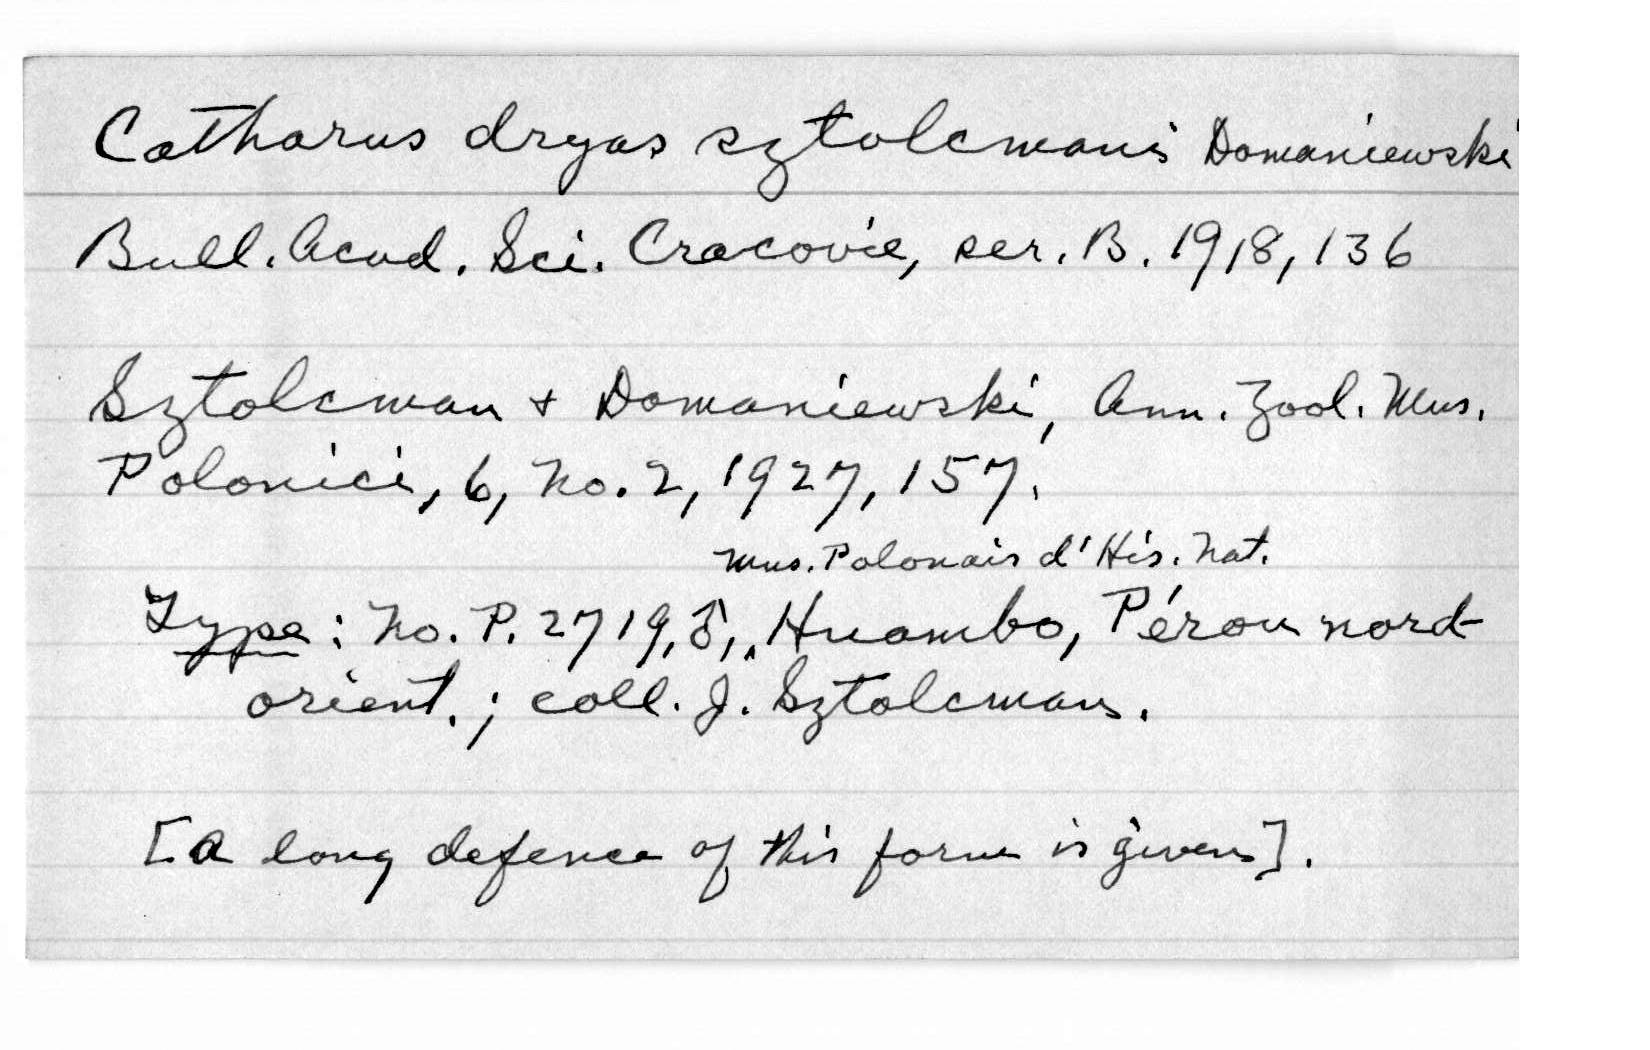 Catharus dryas sztolcmani Domaniewski
Bull. Acad. Sci. Cracovie, ser. B. 1918, 136
Sztolcman + Domaniewski, Ann. Zool. Mus.
Polonici, 6, No. 2, 1927, 157.
Mus. Polonais d'His. Nat.
Type: No. P. 2719, ♂, ‸ Huambo, Pérou nord-
orient.; coll. J. Sztolcman.
[A long defence of this form is given].